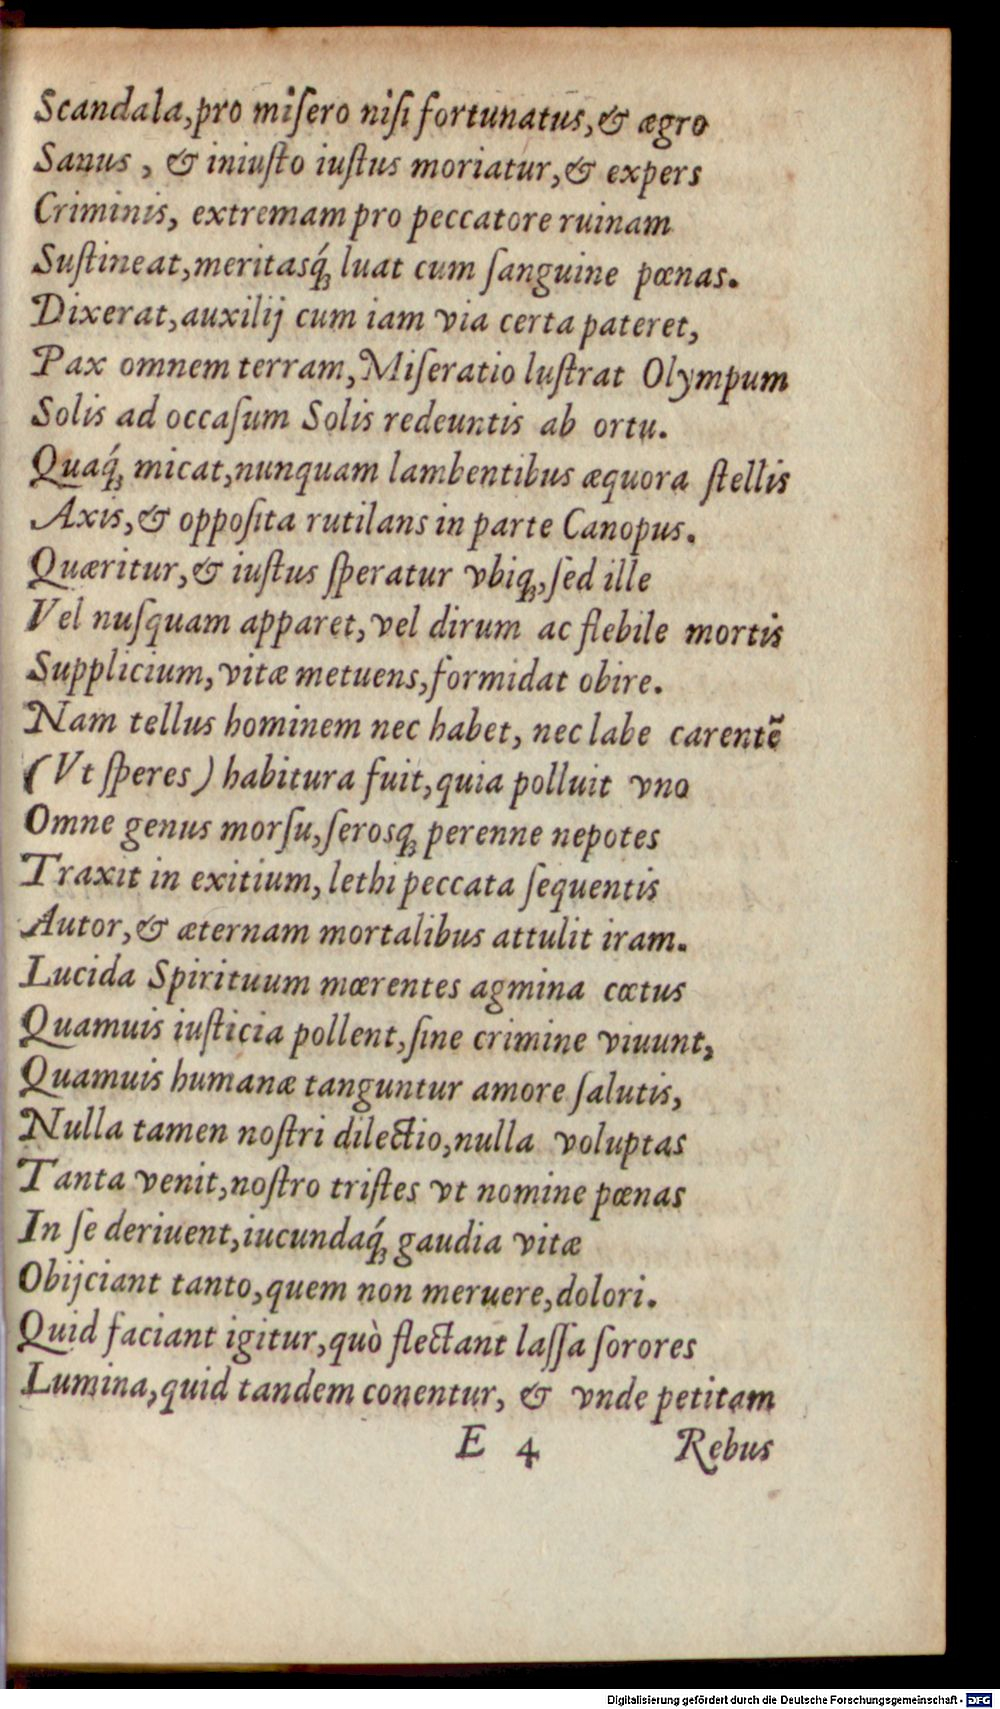 Scandala,pro miſero niſi fortunatus,& ægro
Sanus , & iniuſto iuſtus moriatur,& expers
Criminis, extremam pro peccatore ruinam
Suſtineat,meritasq́; luat cum ſanguine pœnas.
Dixerat,auxilij cum iam via certa pateret,
Pax omnem terram,Miſeratio luſtrat Olympum
Solis ad occaſum Solis redeuntis ab ortu.
Quaq́; micat,nunquam lambentibus æquora ſtellis
Axis,& oppoſita rutilans in parte Canopus.
Quæritur,& iuſtus ſperatur vbiq;,ſed ille
Vel nuſquam apparet,vel dirum ac flebile mortis
Supplicium,vitæ metuens,formidat obire.
Nam tellus hominem nec habet, nec labe carentẽ
(Vt ſperes) habitura fuit,quia polluit vno
Omne genus morſu,ſerosq; perenne nepotes
Traxit in exitium, lethi peccata ſequentis
Autor,& æternam mortalibus attulit iram.
Lucida Spirituum mœrentes agmina cœtus
Quamuis iuſticia pollent,ſine crimine viuunt,
Quamuis humanæ tanguntur amore ſalutis,
Nulla tamen noſtri dilectio,nulla voluptas
Tanta venit,noſtro triſtes vt nomine pœnas
In ſe deriuent,iucundaq́; gaudia vitæ
Obijciant tanto,quem non meruere,dolori.
Quid faciant igitur,quò flectant laſſa ſorores
Lumina,quid tandem conentur, & vnde petitam
E 4 Rebus
Digitalisierung gefördert durch die Deutsche Forschungsgemeinschaft - DFG